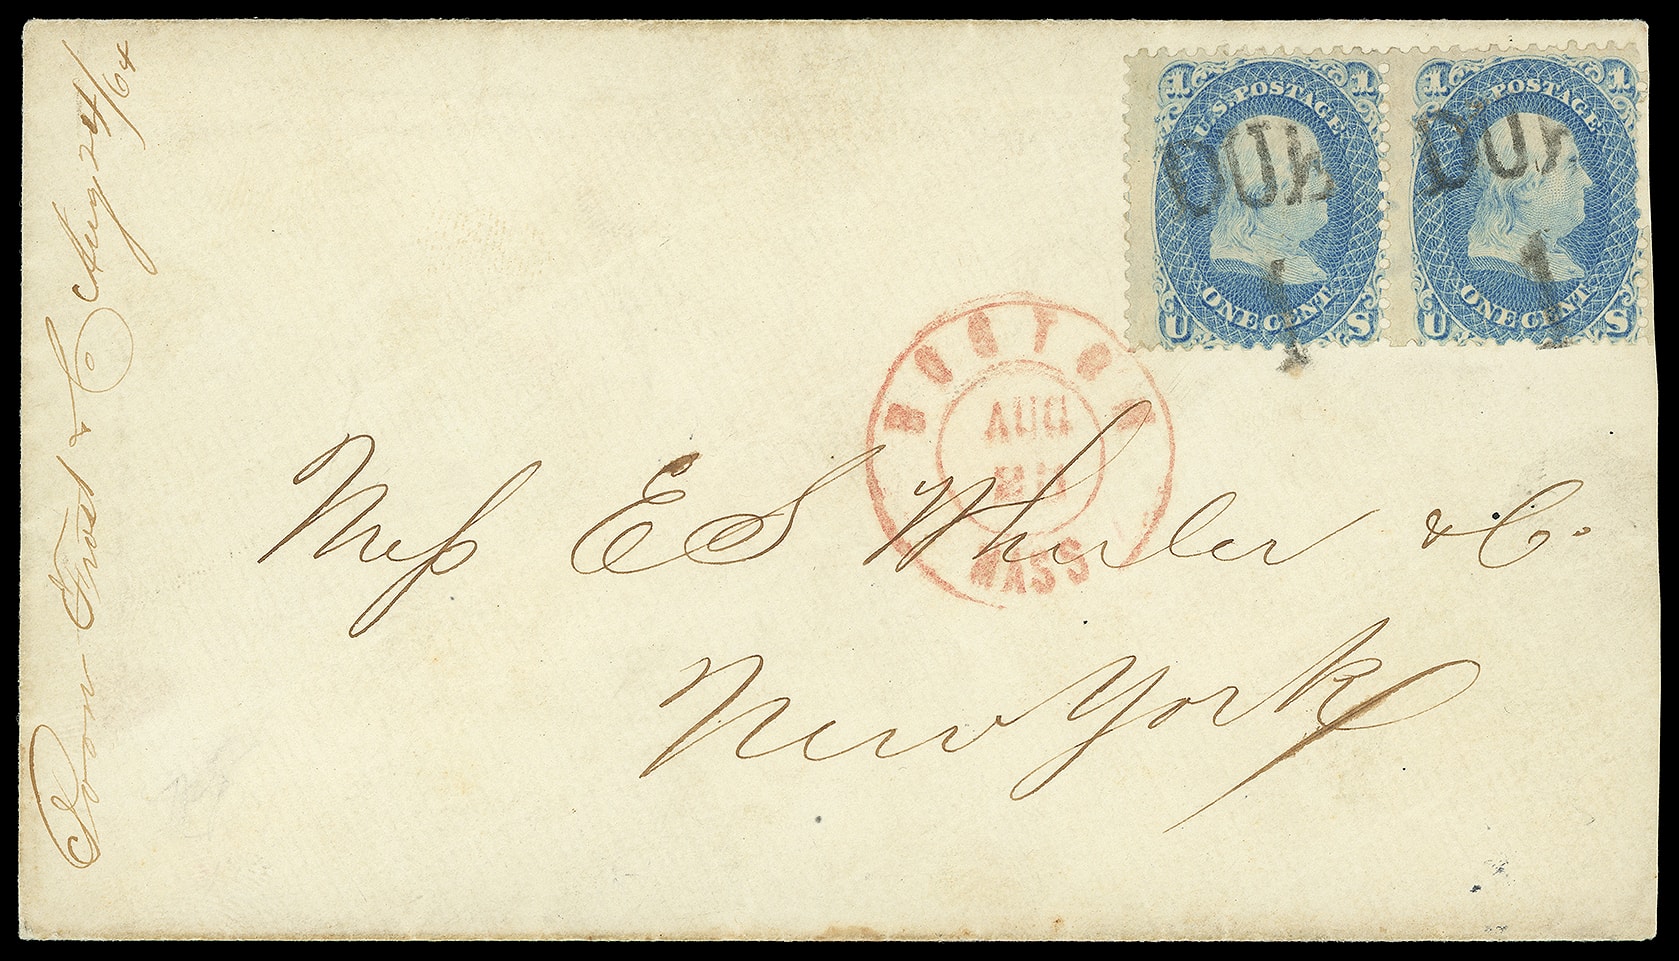 1 1
U.S. POSTAGE
DUE
1
ONE CENT.
U S
1 1
POSTAGE
DUE
1
ONE CENT.
U S
BOSTON
AUG
MASS
Mess E S Wheeler & Co.
New York
Frost & C Aug 24/64